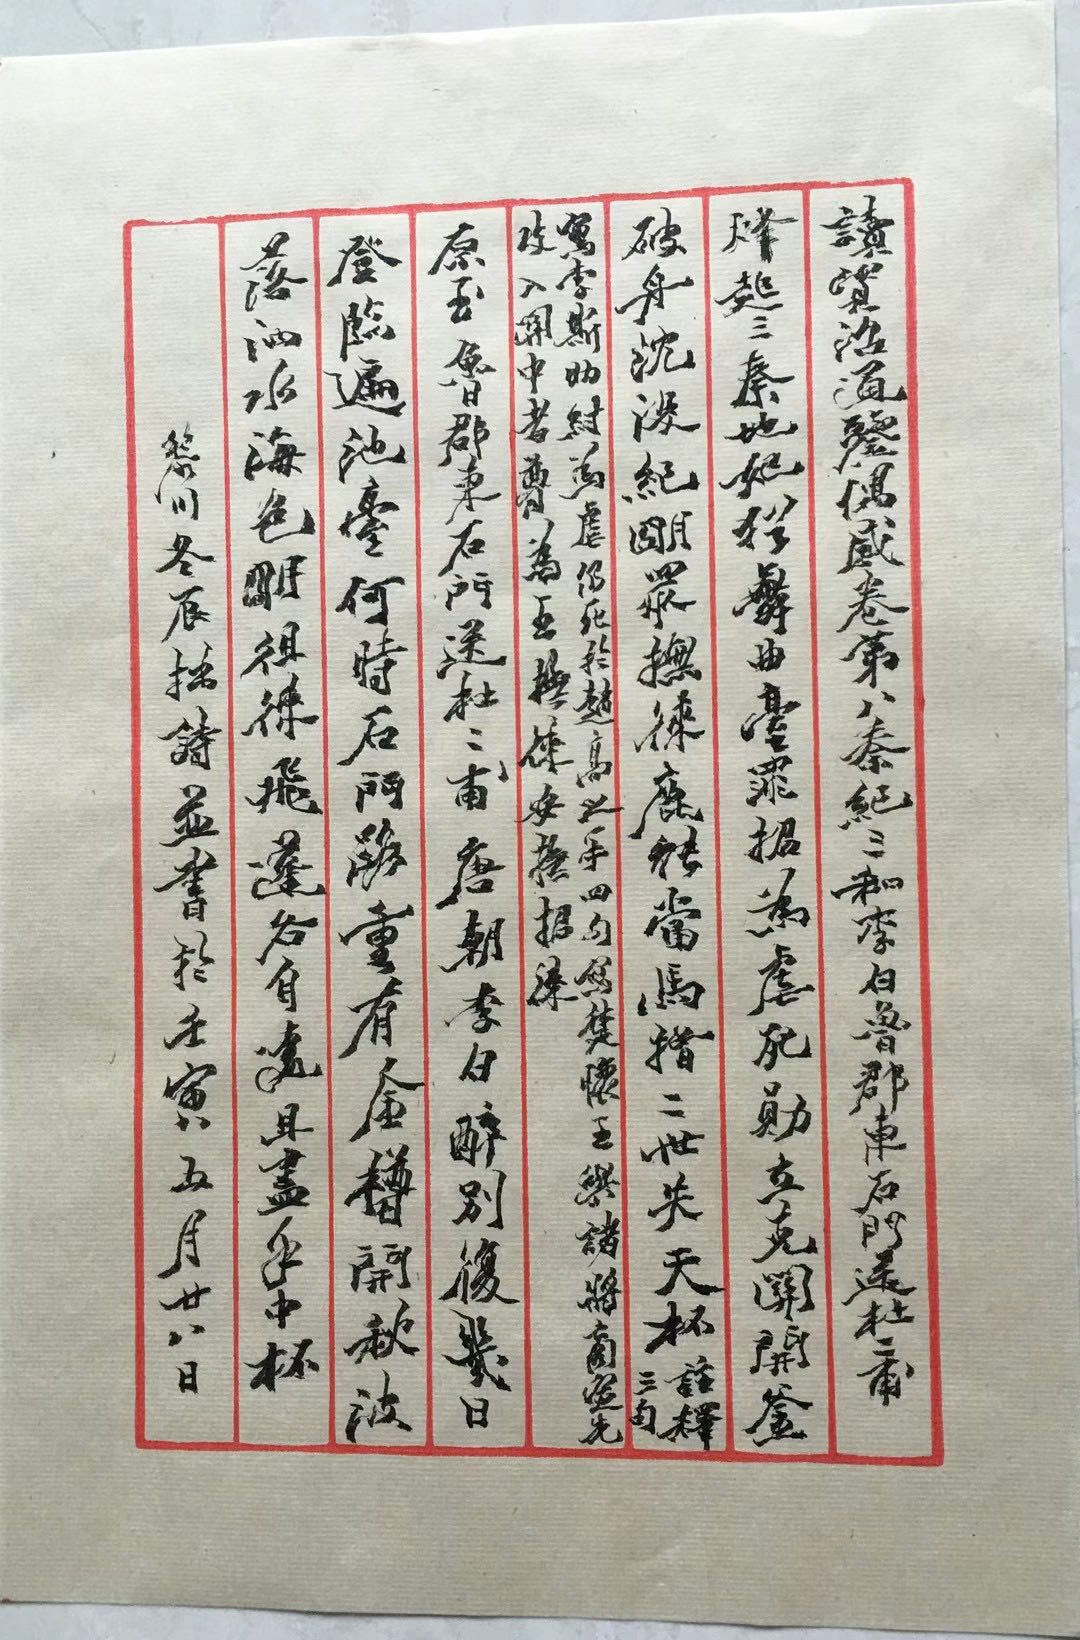 讀資治通鑒偶感卷第八秦紀三和李白魯郡東石門送杜二甫
烽起三秦地妃猶舞曲臺罪招為虐死勛立克關開釜
破舟沈沒紀明眾撫徠鹿能當馬指二世失天杯註釋三句
寫李斯助紂為虐仍死於趙高之手四句寫楚懷王與諸將商定先
攻入關中者尊為王撫徠安撫招徠
原玉魯郡東石門送杜二甫唐朝李白醉別復幾日
登臨遍池臺何時石門路重有金樽開秋波
落泗水海色明徂徠飛蓬各自遠且盡手中杯
黎川冬辰拙詩並書於壬寅五月廿八日